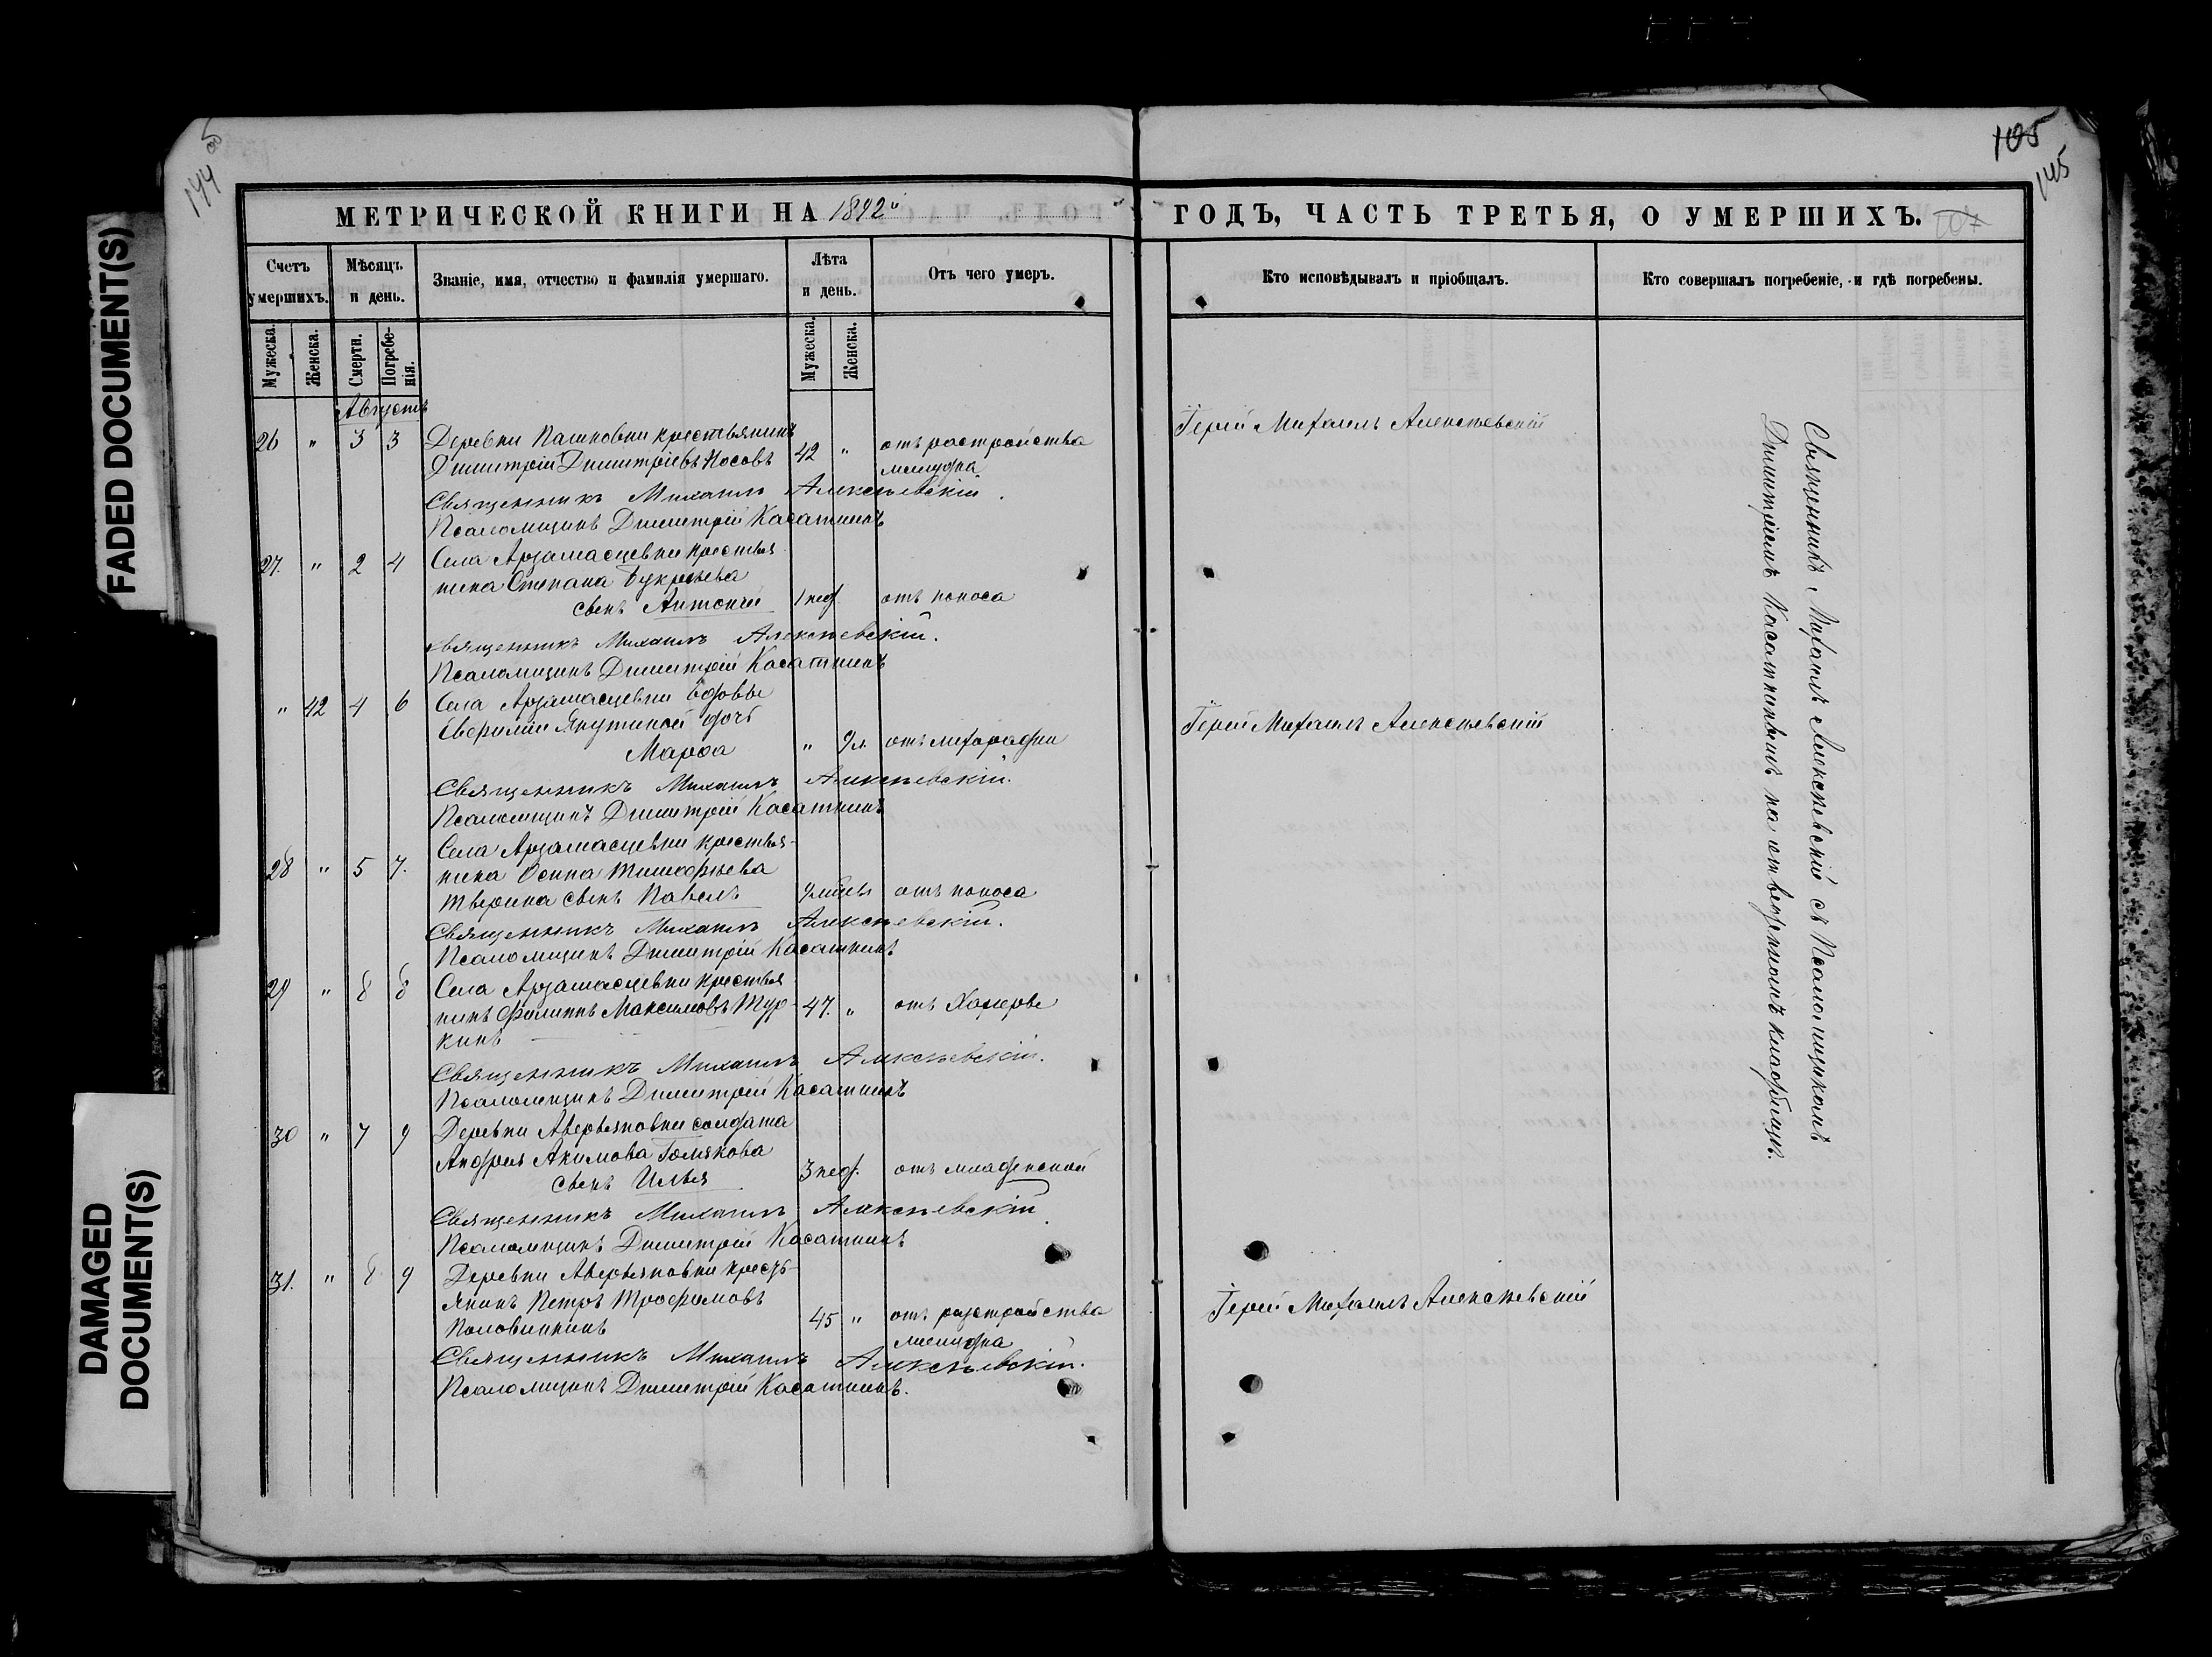 FADED DOCUMENT(S)
DAMAGED
DOCUMENT(S)
144
МЕТРИЧЕСКОЙ КНИГИ НА 1892й
Счетъ умершихъ.
Мѣсяцъ и день.
Званіе, имя, отчество и фамилія умершаго.
Лѣта и день.
Отъ чего умеръ.
Мужеска.
Женска.
Смерти.
Погребенія.
Мужеска.
Женска.
Августъ
26 " 3 3 Деревни Пашковки крестьянинъ
Димитрій Димитріевъ Носовъ 42 " отъ растройства
желудка
Священникъ Михаилъ Алексѣевскій.
Псаломщикъ Димитрій Касаткинъ
27. " 2 4 Села Арзамасцевки крестья
нина Степана Букрѣева
сынъ Антоній 1 нед отъ поноса
Священникъ Михаилъ Алексѣевскій.
Псаломщикъ Димитрій Касаткинъ
" 42 4 6 Села Арзамасцевки вдовы
Евфиміи Якутиной дочь
Марфа " 9 л. отъ лихорадки
Священникъ Михаилъ Алексѣевскій.
Псаломщикъ Димитрій Касаткинъ
28 " 5 7. Села Арзамасцевки крестья-
нина Осипа Тимофѣева
Тверина сынъ Павелъ отъ поноса
Священникъ Михаилъ Алексѣевскій.
Псаломщикъ Димитрій Касаткинъ
29 " 8 8 Села Арзамасцевки крестья
нинъ Филиппъ Максимовъ Тур- 47. " отъ Холеры
кинъ
Священникъ Михаилъ Алексѣевскій.
Псаломщикъ Димитрій Касаткинъ
30 " 7 9 Деревни Аверьяновки солдата
Андрея Акимова Голякова
сынъ Илья 3 нед. отъ младенской
Священникъ Михаилъ Алексѣевскій
Псаломщикъ Димитрій Касаткинъ
31. " 8 9 Деревни Аверьяновки кресть-
янинъ Петръ Трофимовъ
Половинкинъ 45 " отъ разстройства
желудка
Священникъ Михаилъ Алексѣевскій.
Псаломщикъ Димитрій Касаткинъ.
105
145
ГОДЪ, ЧАСТЬ ТРЕТЬЯ, О УМЕРШИХЪ.
107
Кто исповѣдывалъ и пріобщалъ.
Кто совершалъ погребеніе, и гдѣ погребены.
Іерей Михаилъ Алексѣевскій
Іерей Михаилъ Алексѣевскій
Іерей Михаилъ Алексѣевскій
Священникъ Михаилъ Алексѣевскій съ Псаломщикомъ
Димитріемъ Касаткинымъ на отведенномъ кладбищѣ.